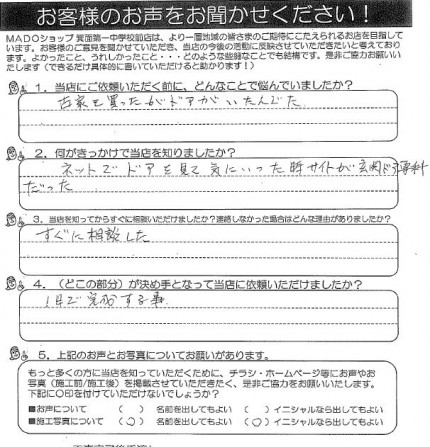 お客様のお声をお聞かせください！
MADOショップ 箕面第一中学校前店は、より一層地域の皆さまのご期待にこたえられるお店を目指しています。お客様のご意見を聞かせていただき、当店の今後の活動に反映させていただきたいと考えております。よかったこと、うれしかったこと・・・どのような些細なことでも結構です。是非ご協力お願いいたします（できるだけ具体的に書いていただけると助かります！）
1．当店にご依頼いただく前に、どんなことで悩んでいましたか？
古家を買ったがドアがいたんでた
2．何がきっかけで当店を知りましたか？
ネットでドアを見て気にいった時サイトが玄関ドア専科
だった
3．当店を知ってからすぐに相談いただけましたか？連絡しなかった場合はどんな理由がありましたか？
すぐに相談した
4．（どこの部分）が決め手となって当店に依頼いただけましたか？
1日で完成する事
5．上記のお声とお写真についてお願いがあります。
もっと多くの方に当店を知っていただくために、チラシ・ホームページ等にお声やお
写真（施工前/施工後）を掲載させていただきたく、是非ご協力をお願いいたします。
下記に○印を付けていただけないでしょうか？
■お声について （ ） 名前を出してもよい （ ）イニシャルなら出してもよい
■施工写真について （○） 名前を出してもよい （ ）イニシャルなら出してもよい